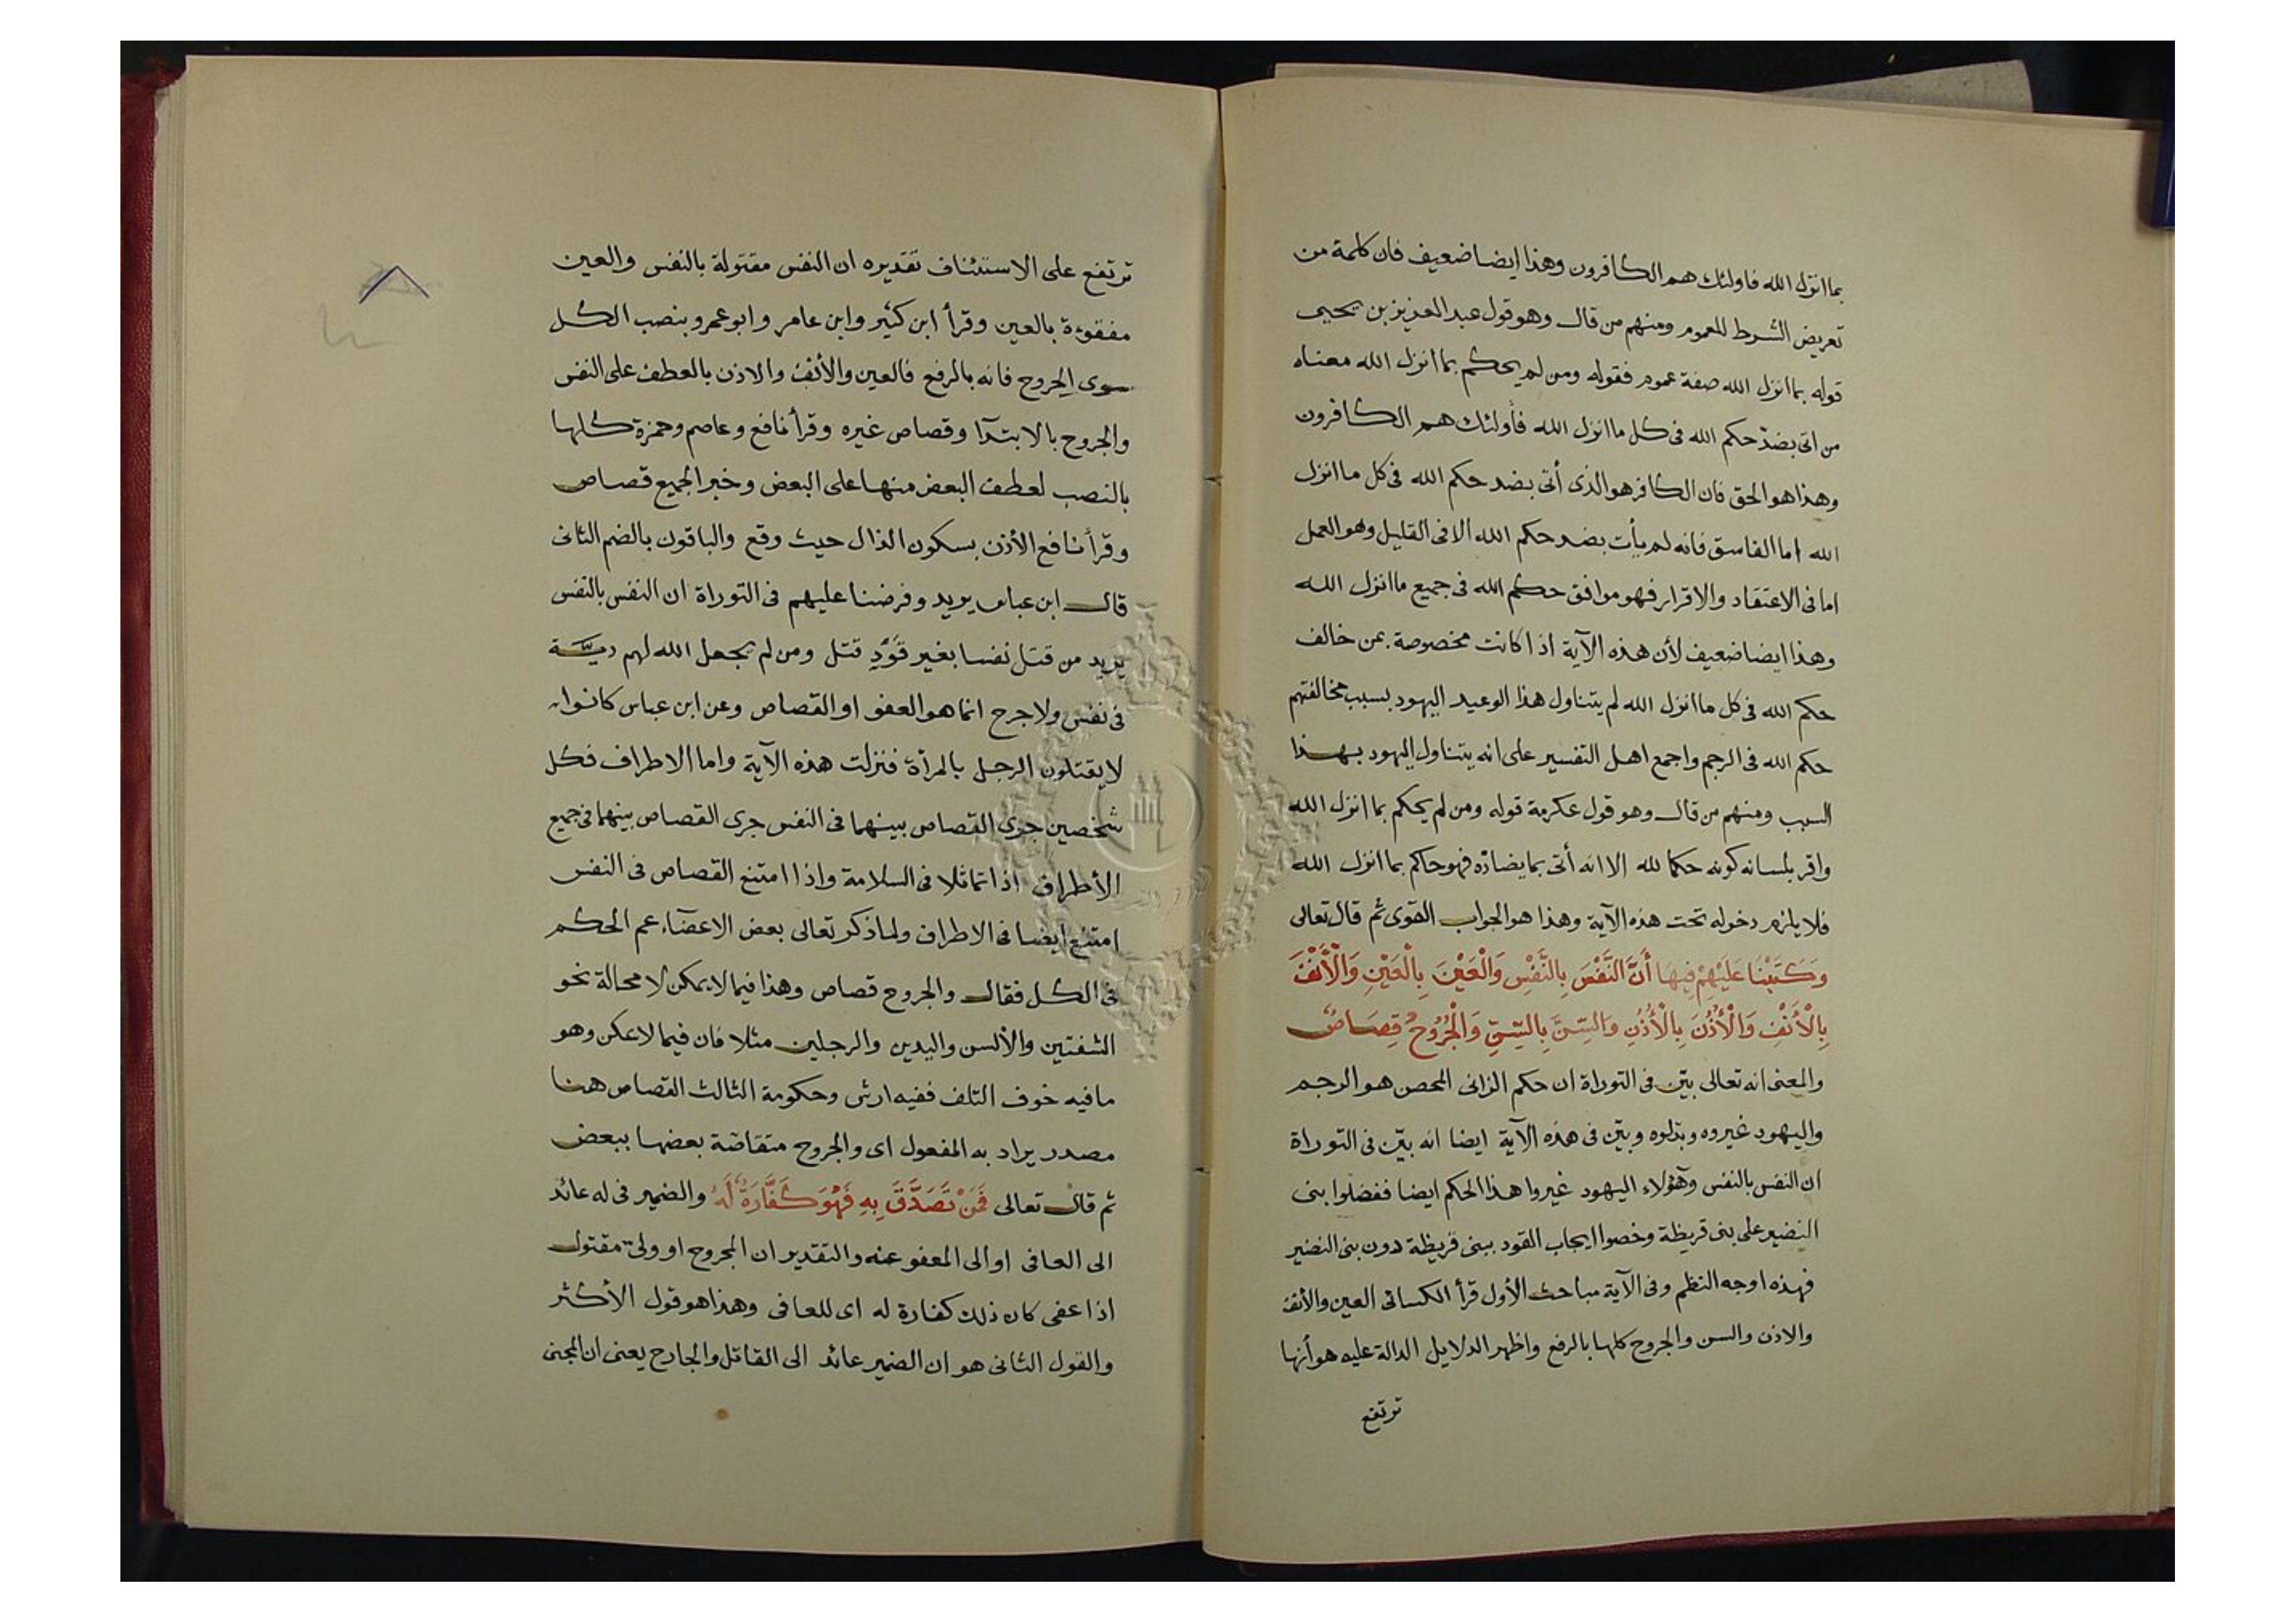 بما انزل الله فاولئك هم الكافرون وهذا ايضا ضعيف فان كلمة من
تعريض الشرط للعموم ومنهم من قال وهو قول عبد العزيز بن يحيى
قوله بما انزل الله صفة عموم فقوله ومن لم يحكم بما انزل الله معناه
من اتى بضدّ حكم الله فى كل ما انزل الله فأولئك هم الكافرون
وهذا هو الحق فان الكافر هو الذى أتى بضد حكم الله فى كل ما انزل
الله اما الفاسق فانه لم يأت بضد حكم الله الا فى القليل وهو العمل
اما فى الاعتقاد والاقرار فهو موافق حكم الله فى جميع ما انزل الله
وهذا ايضا ضعيف لأن هذه الآية اذا كانت مخصوصة بمن خالف
حكم الله فى كل ما انزل الله لم يتناول هذا الوعيد اليهود بسبب مخالفتهم
حكم الله فى الرجم واجمع اهل التفسير على انه يتناول اليهود بهذا
السبب ومنهم من قال وهو قول عكرمة قوله ومن لم يحكم بما انزل الله
واقر بلسانه كونه حكما لله الا انه أتى بما يضادّه فهو حاكم بما انزل الله
فلا يلزم دخوله تحت هذه الآية وهذا هو الجواب القوى ثم قال تعالى
وَكَتَبْنَا عَلَيْهِمْ فِيهَا أَنَّ النَّفْسَ بِالنَّفْسِ وَالْعَيْنَ بِالْعَيْنِ وَالْأَنْفَ
بِالْأَنْفِ وَالْأُذُنَ بِالْأُذُنِ وَالسِّنَّ بِالسِّنِّ وَالْجُرُوحُ قِصَاصٌ
والمعنى انه تعالى بيّن فى التوراة ان حكم الزانى المحصن هو الرجم
واليهود غيروه وبدلوه وبيّن فى هذه الآية ايضا انه بيّن فى التوراة
ان النفس بالنفس وهؤلاء اليهود غيروا هذا الحكم ايضا ففضلوا بنى
النضير على بنى قريظة وخصوا ايجاب القود ببنى قريظة دون بنى النضير
فهذه اوجه النظم وفى الآية مباحث الأول قرأ الكسائى العين والأنف
والاذن والسن والجروح كلها بالرفع واظهر الدلايل الدالة عليه هو أنها
ترتفع
ترتفع على الاستئناف تقديره ان النفس مقتولة بالنفس والعين
مفقوءة بالعين وقرأ ابن كثير وابن عامر وابو عمرو بنصب الكل
سوى الجروح فانه بالرفع فالعين والأنف والاذن بالعطف على النفس
والجروح بالابتدآ وقصاص غيره وقرأ نافع وعاصم وحمزة كلها
بالنصب لعطف البعض منها على البعض وخبر الجميع قصاص
وقرأ نافع الأذن بسكون الذال حيث وقع والباقون بالضم الثانى
قال ابن عباس يريد وفرضنا عليهم فى التوراة ان النفس بالنفس
يريد من قتل نفسا بغير قَوَدٍ قتل ومن لم يجعل الله لهم ديّة
فى نفس ولا جرح انما هو العفو او القصاص وعن ابن عباس كانوا
لا يقتلون الرجل بالمرأة فنزلت هذه الآية واما الاطراف فكل
شخصين جرى القصاص بينهما فى النفس جرى القصاص بينهما فى جميع
الأطراف اذا تماثلا فى السلامة واذا امتنع القصاص فى النفس
امتنع ايضا فى الاطراف ولما ذكر تعالى بعض الاعضاء عم الحكم
فى الكل فقال والجروح قصاص وهذا فيما لا يمكن لا محالة نحو
الشفتين والألسن واليدين والرجلين مثلا فان فيما لا يمكن وهو
ما فيه خوف التلف ففيه ارش وحكومة الثالث القصاص هنا
مصدر يراد به المفعول اى والجروح متقاصّة بعضها ببعض
ثم قال تعالى فَمَنْ تَصَدَّقَ بِهِ فَهُوَ كَفَّارَةٌ لَهُ والضمير فى له عائد
الى العافى او الى المعفو عنه والتقدير ان المجروح او ولىّ مقتول
اذا عفى كان ذلك كفارة له اى للعافى وهذا هو قول الأكثر
والقول الثانى هو ان الضمير عائد الى القاتل والجارح يعنى ان المجنى